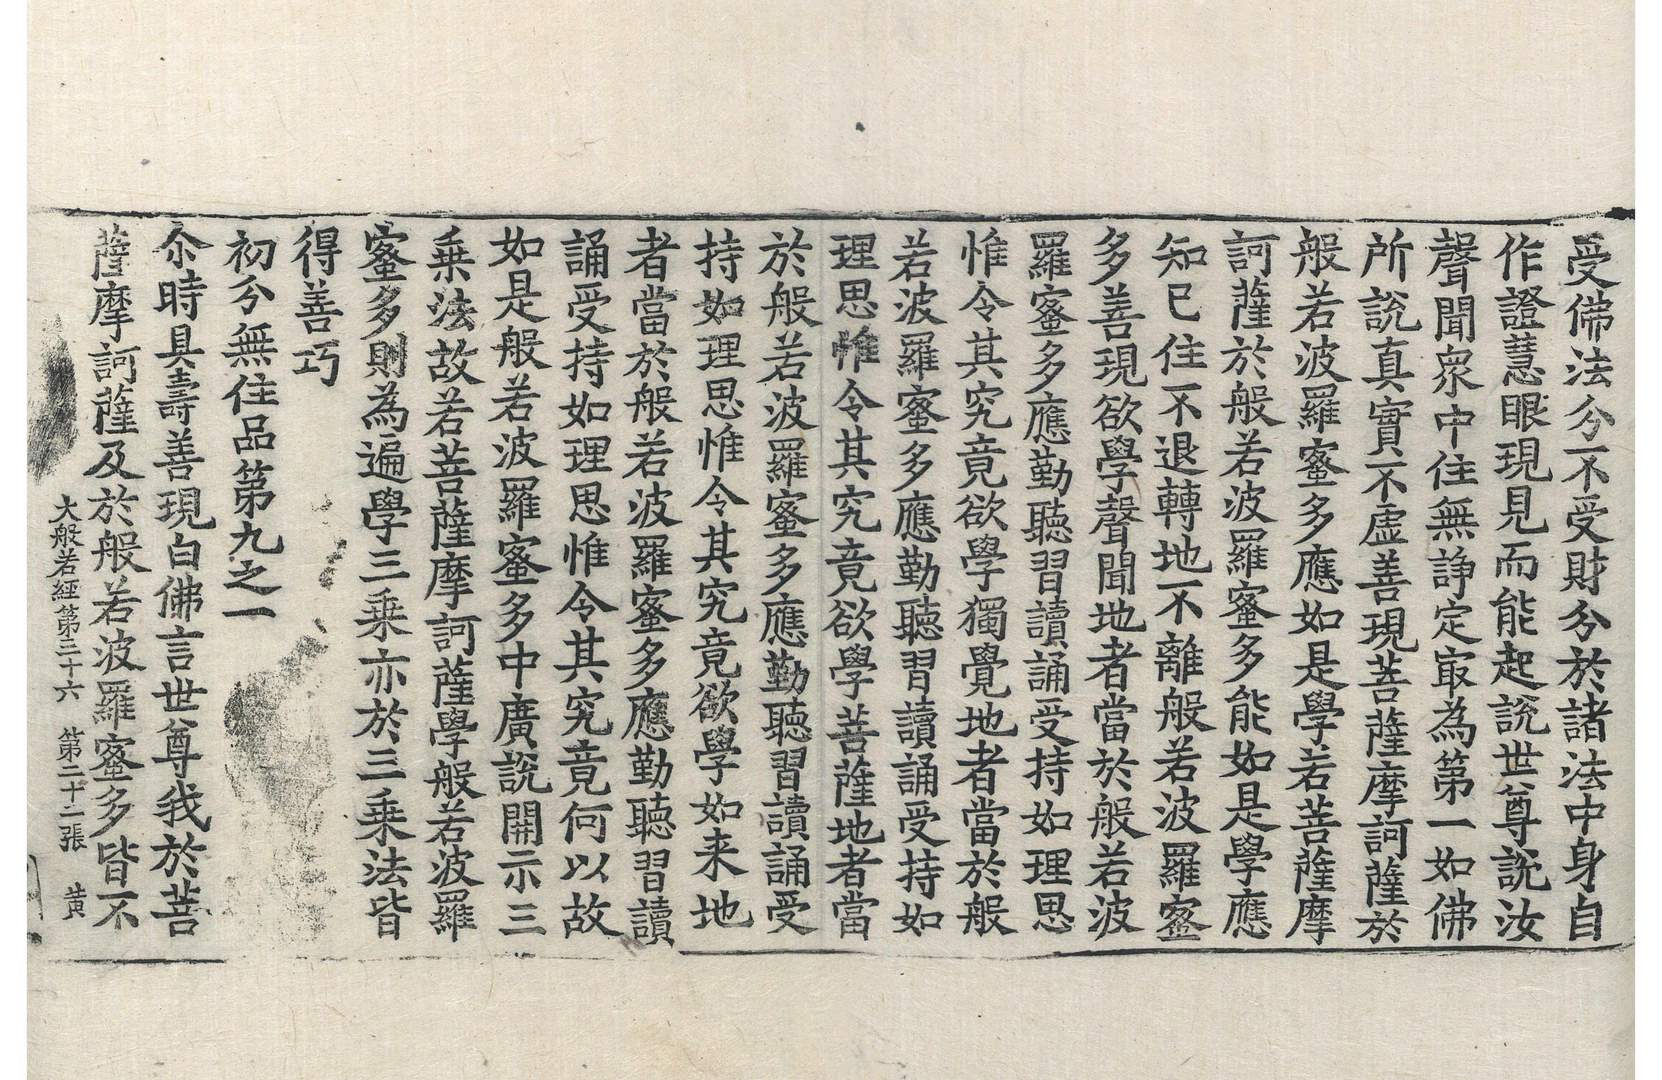 受佛法分不受財分於諸法中身自
作證慧眼現見而能起說世尊說汝
聲聞衆中住無諍定㝡為第一如佛
所說真實不虛善現菩薩摩訶薩於
般若波羅蜜多應如是學若菩薩摩
訶薩於般若波羅蜜多能如是學應
知已住不退轉地不離般若波羅蜜
多善現欲學聲聞地者當於般若波
羅蜜多應勤聽習讀誦受持如理思
惟令其究竟欲學獨覺地者當於般
若波羅蜜多應勤聽習讀誦受持如
理思惟令其究竟欲學菩薩地者當
於般若波羅蜜多應勤聽習讀誦受
持如理思惟令其究竟欲學如来地
者當於般若波羅蜜多應勤聽習讀
誦受持如理思惟令其究竟何以故
如是般若波羅蜜多中廣說開示三
乗法故若菩薩摩訶薩學般若波羅
蜜多則為遍學三乗亦於三乗法皆
得善巧
初分無住品第九之一
尒時具壽善現白佛言世尊我於菩
薩摩訶薩及於般若波羅蜜多皆不
大般若經第三十六 第二十二張 黄